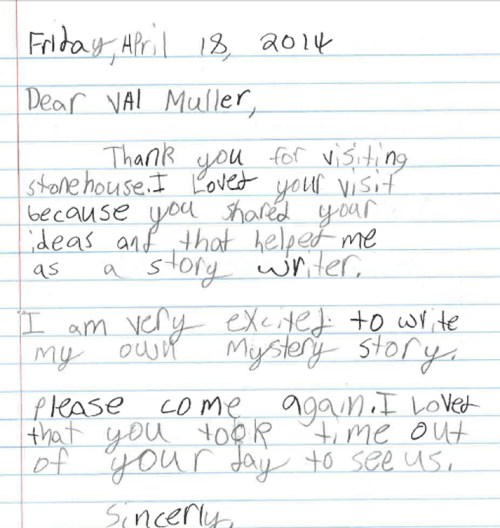 Friday, April 18, 2014
Dear VAl Muller,
Thank you for visiting
stonehouse. I Loved your visit
because you shared your
ideas and that helped me
as a story writer.
I am very excited to write
my own mystery story.
please come again. I Loved
that you took time out
of your day to see us.
Sincerly,